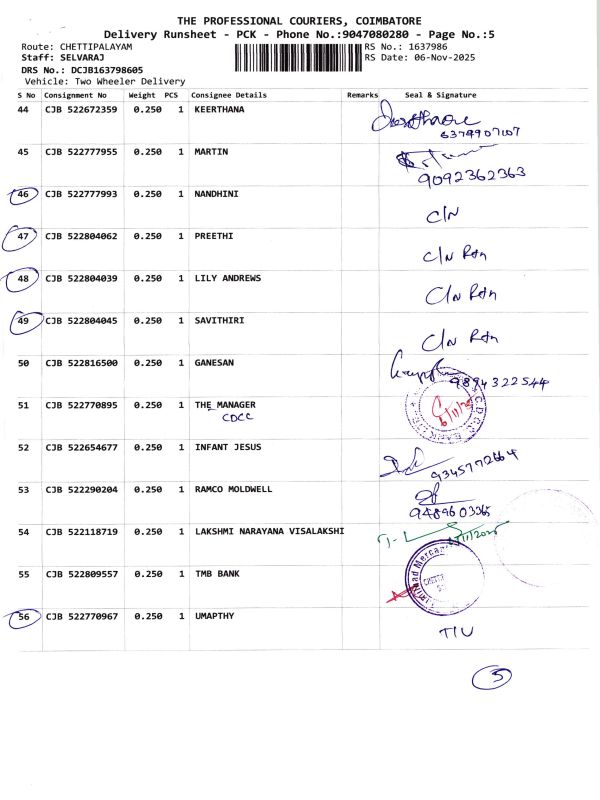 THE PROFESSIONAL COURIERS, COIMBATORE
Delivery Runsheet - PCK - Phone No.:9047080280 - Page No.:5
Route: CHETTIPALAYAM RS No.: 1637986
Staff: SELVARAJ RS Date: 06-Nov-2025
DRS No.: DCJB163798605
Vehicle: Two Wheeler Delivery
S No Consignment No Weight PCS Consignee Details Remarks Seal & Signature
44 CJB 522672359 0.250 1 KEERTHANA
6379907107
45 CJB 522777955 0.250 1 MARTIN
9092362363
46 CJB 522777993 0.250 1 NANDHINI C/N
47 CJB 522804062 0.250 1 PREETHI C/N Rtn
48 CJB 522804039 0.250 1 LILY ANDREWS C/N Rtn
49 CJB 522804045 0.250 1 SAVITHIRI C/N Rtn
50 CJB 522816500 0.250 1 GANESAN
9894322544
51 CJB 522770895 0.250 1 THE MANAGER
CDCC
52 CJB 522654677 0.250 1 INFANT JESUS
9345772664
53 CJB 522290204 0.250 1 RAMCO MOLDWELL
9489603365
54 CJB 522118719 0.250 1 LAKSHMI NARAYANA VISALAKSHI
55 CJB 522809557 0.250 1 TMB BANK
56 CJB 522770967 0.250 1 UMAPTHY
TIU
5